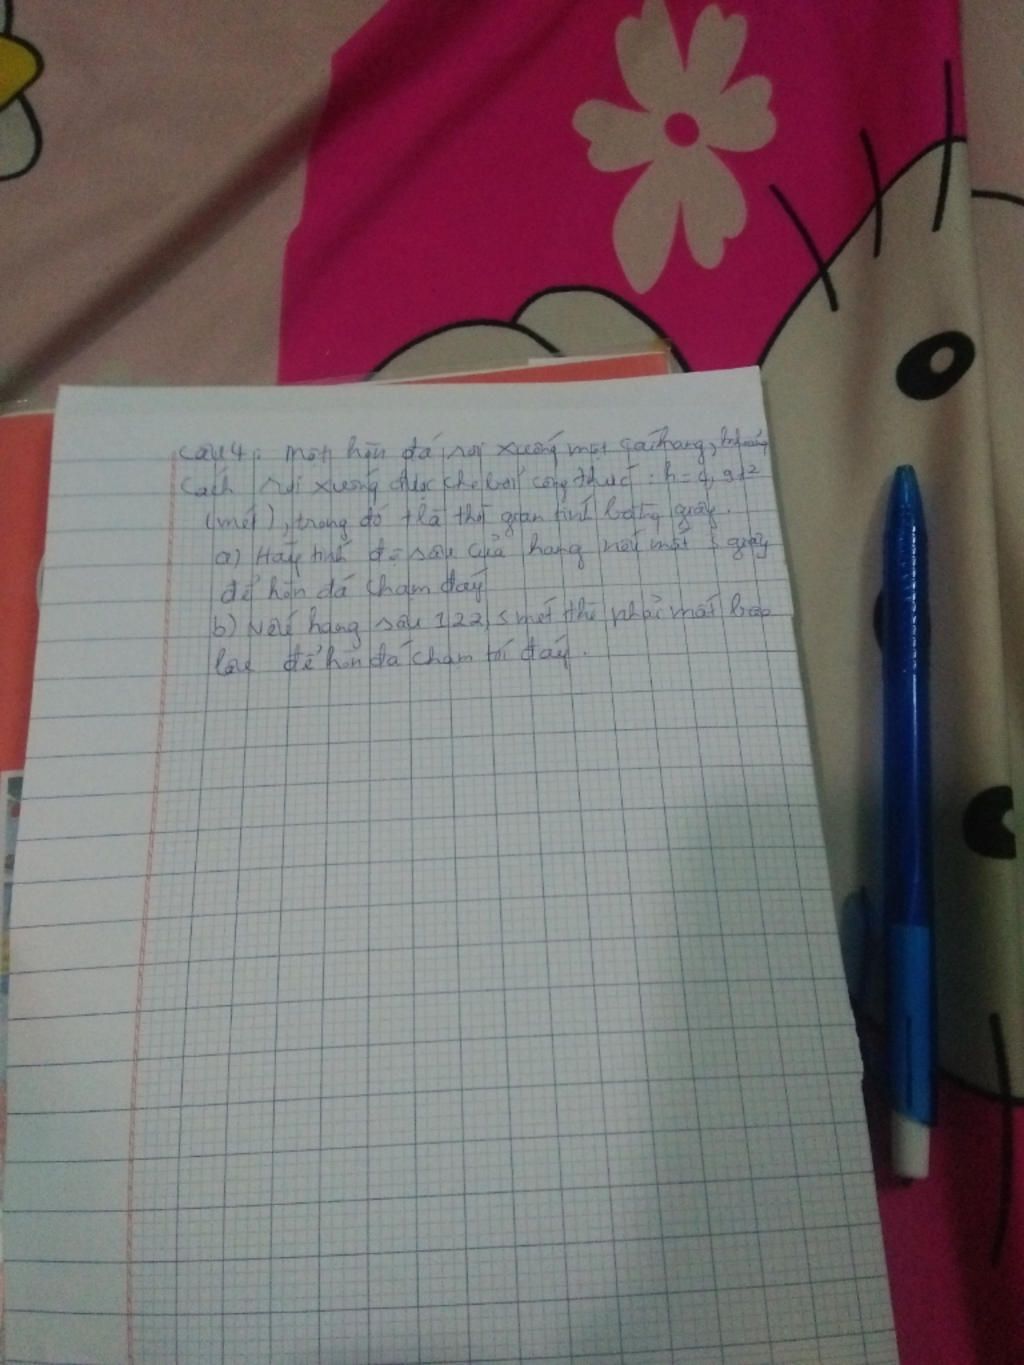 Câu 4: Một hòn đá rơi xuống một cái hang, khoảng
Cách rơi xuống được cho bởi công thức: h = 4,9t²
(mét), trong đó t là thời gian tính bằng giây.
a) Hãy tính độ sâu của hang nếu mất 3 giây
để hòn đá chạm đáy
b) Nếu hang sâu 122,5 mét thì phải mất bao
lâu để hòn đá chạm tới đáy.